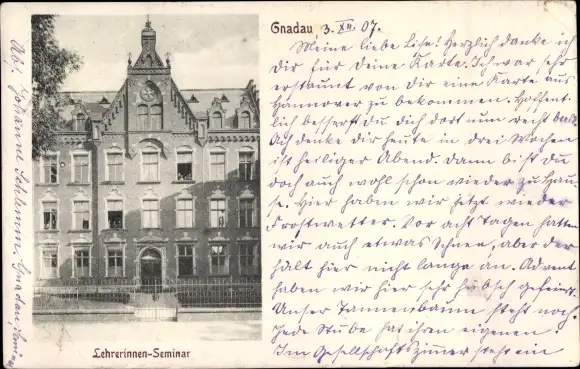 Gnadau, 3. XII. 07.
Meine liebe Lise! Herzlich danke ich
Dir für Deine Karte. Ich war sehr
erstaunt von dir eine Karte aus
Hannover zu bekommen. Hoffent-
lich besserst du dich dort nun recht bald.
Ach denke dir heute in drei Wochen
ist heiliger Abend. dann bist du
doch auch wohl schon wieder zu Hau-
se. Hier haben wir jetzt wieder
Frostwetter. Vor acht Tagen hatten
wir auch etwas Schnee, aber der
hält hier nicht lange an. Advent
haben wir hier sehr hübsch gefeiert.
Unser Tannenbaum steht noch
Jede Stube hat ihren eigenen.
Im Gesellschaftszimmer steht ein
Lehrerinnen-Seminar
Abs. Johanne Gnadau,